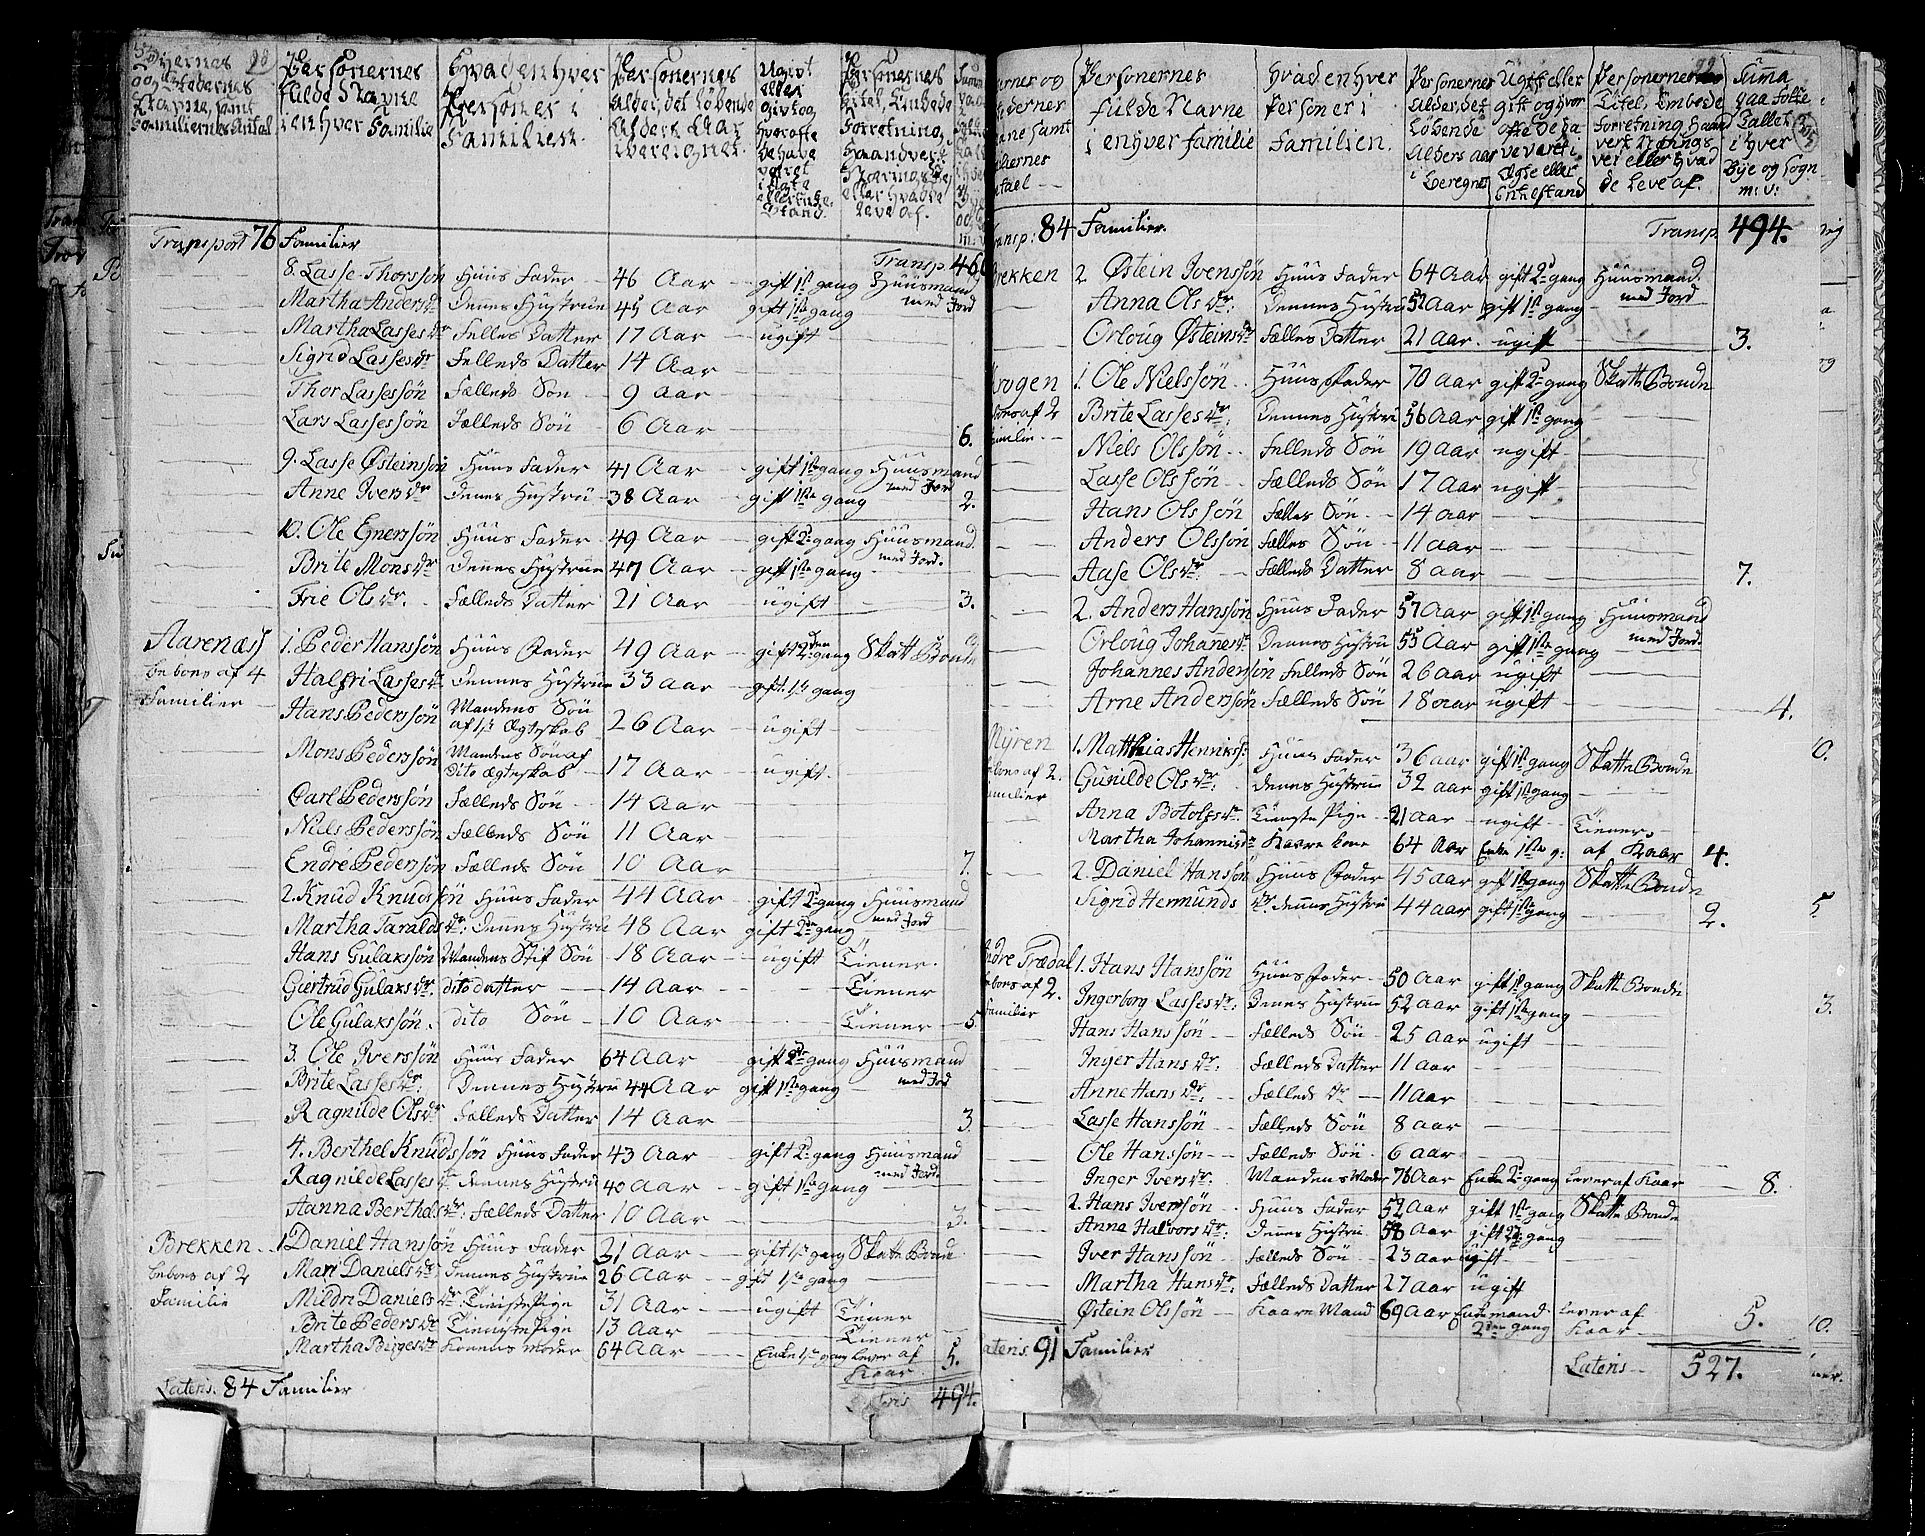 Byernes og Stedernes Navne, samt Familiernes Antal | Personernes fulde Navne i enhver Familie | Hvad enhver Person er i Familien. | Personernes Alder, det løbende Alders Aar iberegnet. | Ugivt eller givt og hvor ofte de have været i Ægte eller Enke Stand. | Personernes Titel, Embede Forretning, Haandverk Nærings Vei eller hvad de leve af.
Transport 76 Familier
Transp.
8. Lasse Thorssøn Huus Fader 46 Aar gift 1ste gang Huusmand med Jord
Martha Andersdr Dennes Hustrue 45 Aar gift 1ste gang
Martha Lassesdr Felles Datter 17 Aar ugift
Sigrid Lassesdr Felleds Datter 14 Aar
Thor Lassessøn Fælleds Søn 9 Aar
Lars Lassessøn Fælleds Søn 6 Aar 6.
9. Lasse Østeinssøn Huus Fader 41 Aar gift 1ste gang Huusmand med Jord
Anne Iversdr Denes Hustrue 38 Aar gift 1ste gang 2.
10. Ole Enerssøn Huus Fader 49 Aar gift 2. gang Huusmand med Jord.
Brite Monsdr Denes Hustrue 47 Aar gift 1ste gang
Frie Olsdr. Fælleds Datter 21 Aar ugift 3.
Aarenæs 1. Peder Hanssøn Huus Fader 49 Aar gift 2den gang Skatte Bonde
bebons af 4 Halfri Lassesdr Dennes Hustrue 33 Aar gift 1. gang
Familier Hans Pederssøn Mandens Søn af 1ste Ægteskab 26 Aar ugift
Mons Pederssøn Mandens Søn af Dito Ægteskab 17 Aar ugift.
Carl Pederssøn Fælleds Søn 14 Aar
Niels Pederssøn Fælleds Søn 11 Aar
Endre Pederssøn Fælleds Søn 10 Aar 7.
2. Knud Knudssøn Huus Fader 44 Aar gift 2. gang Huusmand med Jord
Martha Taraldsdr. Dennes Hustru 48 Aar gift 2. gang
Hans Gulakssøn Mandens Stif Søn 18 Aar ugift Tiener.
Giertrud Gulaksdr. dito datter 14 Aar Tiener
Ole Gulakssøn. dito Søn 10 Aar Tiener 5.
3. Ole Iverssøn Huus Fader 64 Aar gift 2. gang Huusmand med Jord
Brite Lassesdr. Dennes Hustrue 44 Aar gift 1ste gang
Ragnilde Olsdr Fælleds Datter 14 Aar 3.
4. Berthel Knudssøn Huus Fader 43 Aar gift 2. gang Huusmand med Jord.
Ragnilde Lassesdr Dennes Hustrue 40 Aar gift 1ste gang
Hanna Berthelsdr. Fælleds Datter 10 Aar 3.
Brekken 1 Daniel Hanssøn Huus Fader 31 Aar gift 1. gang Skatte Bonde
bebons af 2 Mari Danielsdr. Dennes Hustrue 26 Aar gift 1ste gang
Familie Mildri Danielsdr. Tieniste Pige 31 Aar ugift Tiener
Brite Pedersdr Tieniste Pige 13 Aar Tiener
Martha Birgesdr Konens Moder 64 Aar Enke 1. gang lever af Kaar 5.
Lateris. 84 Familier
494.
Personernes fulde Navne i enhver familie | Hvad enhver Person er i Familien. | Personernes Alder, det Løbende Alders aar i beregnet | Ugift eller gift og hvor ofte de ha ve været i Ægte eller Enkestand | Personernes Titel, Embede forretning Haand verk Nærings vei eller hvad de leve af. | Summa paa Folke Tallet i hver Bye og Sogn m: v:
Transp: 84 Familier. Transp. 494.
Brekken 2 Østein Ivenssøn Huus Fader 64 Aar gift 2. gang Huusmand. med Jord
Anna Olsdr. Dennes Hustru 52 Aar gift 1ste gang
Orloug Østeinsdr Fælles Datter 21 Aar. ugift 3.
1. Ole Nielssøn Huus Fader 70 aar gift 2. gang Skatte Bonde
Brite Lassesdr. Dennes Hustru 56 Aar gift 1ste gang
Niels Olssøn Felleds Søn 19 Aar ugift
Lasse Olssøn Fælleds Søn 17 Aar ugift
Hans Olssøn Fælles Søn 14 aar
Anders Olssøn Fælles Søn 11 aar
Aase Olsdr. Fælleds Datter 8 aar 7.
2. Anders Hanssøn Huus Fader 57 Aar gift 1ste gang Huusmand med Jord.
Orloug Johanesdr Dennes Hustru 55 Aar gift 1ste gang
Johannes Anderssøn Felleds Søn 26 aar ugift
Arne Anderssøn Fælleds Søn 18 aar ugift 4.
Myren 1. Matthias Henrikss: Huus Fader 36 aar gift 1ste gang Skatte Bonde
Gunilde Olsdr. Denes Hustrue 32 aar gift 1ste gang
Anna Botolfsdr. Tieniste Pige 21 Aar ugift Tiener.
Martha Johannisdr Kaare kone 64 Aar Enke 1ste g: af Kaar 4.
2. Daniel Hanssøn Huus Fader 45 Aar gift 1ste gang Skatte Bonde
Sigrid Hermunds dr. Dennes Hustru 44 aar gift 1ste gang 2.
Trædal 1. Hans Hanssøn Huus Fader 50 Aar gift 1ste gang Skatte Bonde
Ingerborg Lassesdr: Denes Hustrue 52 aar gift 1ste gang
Familier Hans Hanssøn Fælleds Søn 25 Aar ugift
Inger Hansdr. Fælleds Datter 11 aar
Anne Hansdr. Fælleds dr 11 aar
Lasse Hanssøn Fælleds Søn 8 aar
Ole Hanssøn Fælleds Søn 6 aar
Inger Iversdr. Mandens Moder 76 Aar Enke 2. gang Lever af Kaar 8.
2. Hans Iverssøn Huus Fader 52 Aar gift 1ste gang Skatte Bonde
Anna Halvorsdr: Denes Hustru 58 Aar gift 2. gang
Iver Hanssøn Fælleds Søn 23 aar ugift
Martha Hansdr. Fælleds Datter 27 aar ugift
Østein Olssøn Kaare Mand 69 Aar Enkemand 2den gang Lever af Kaar 5.
Lateris. 91 Familier
Lateris 527.